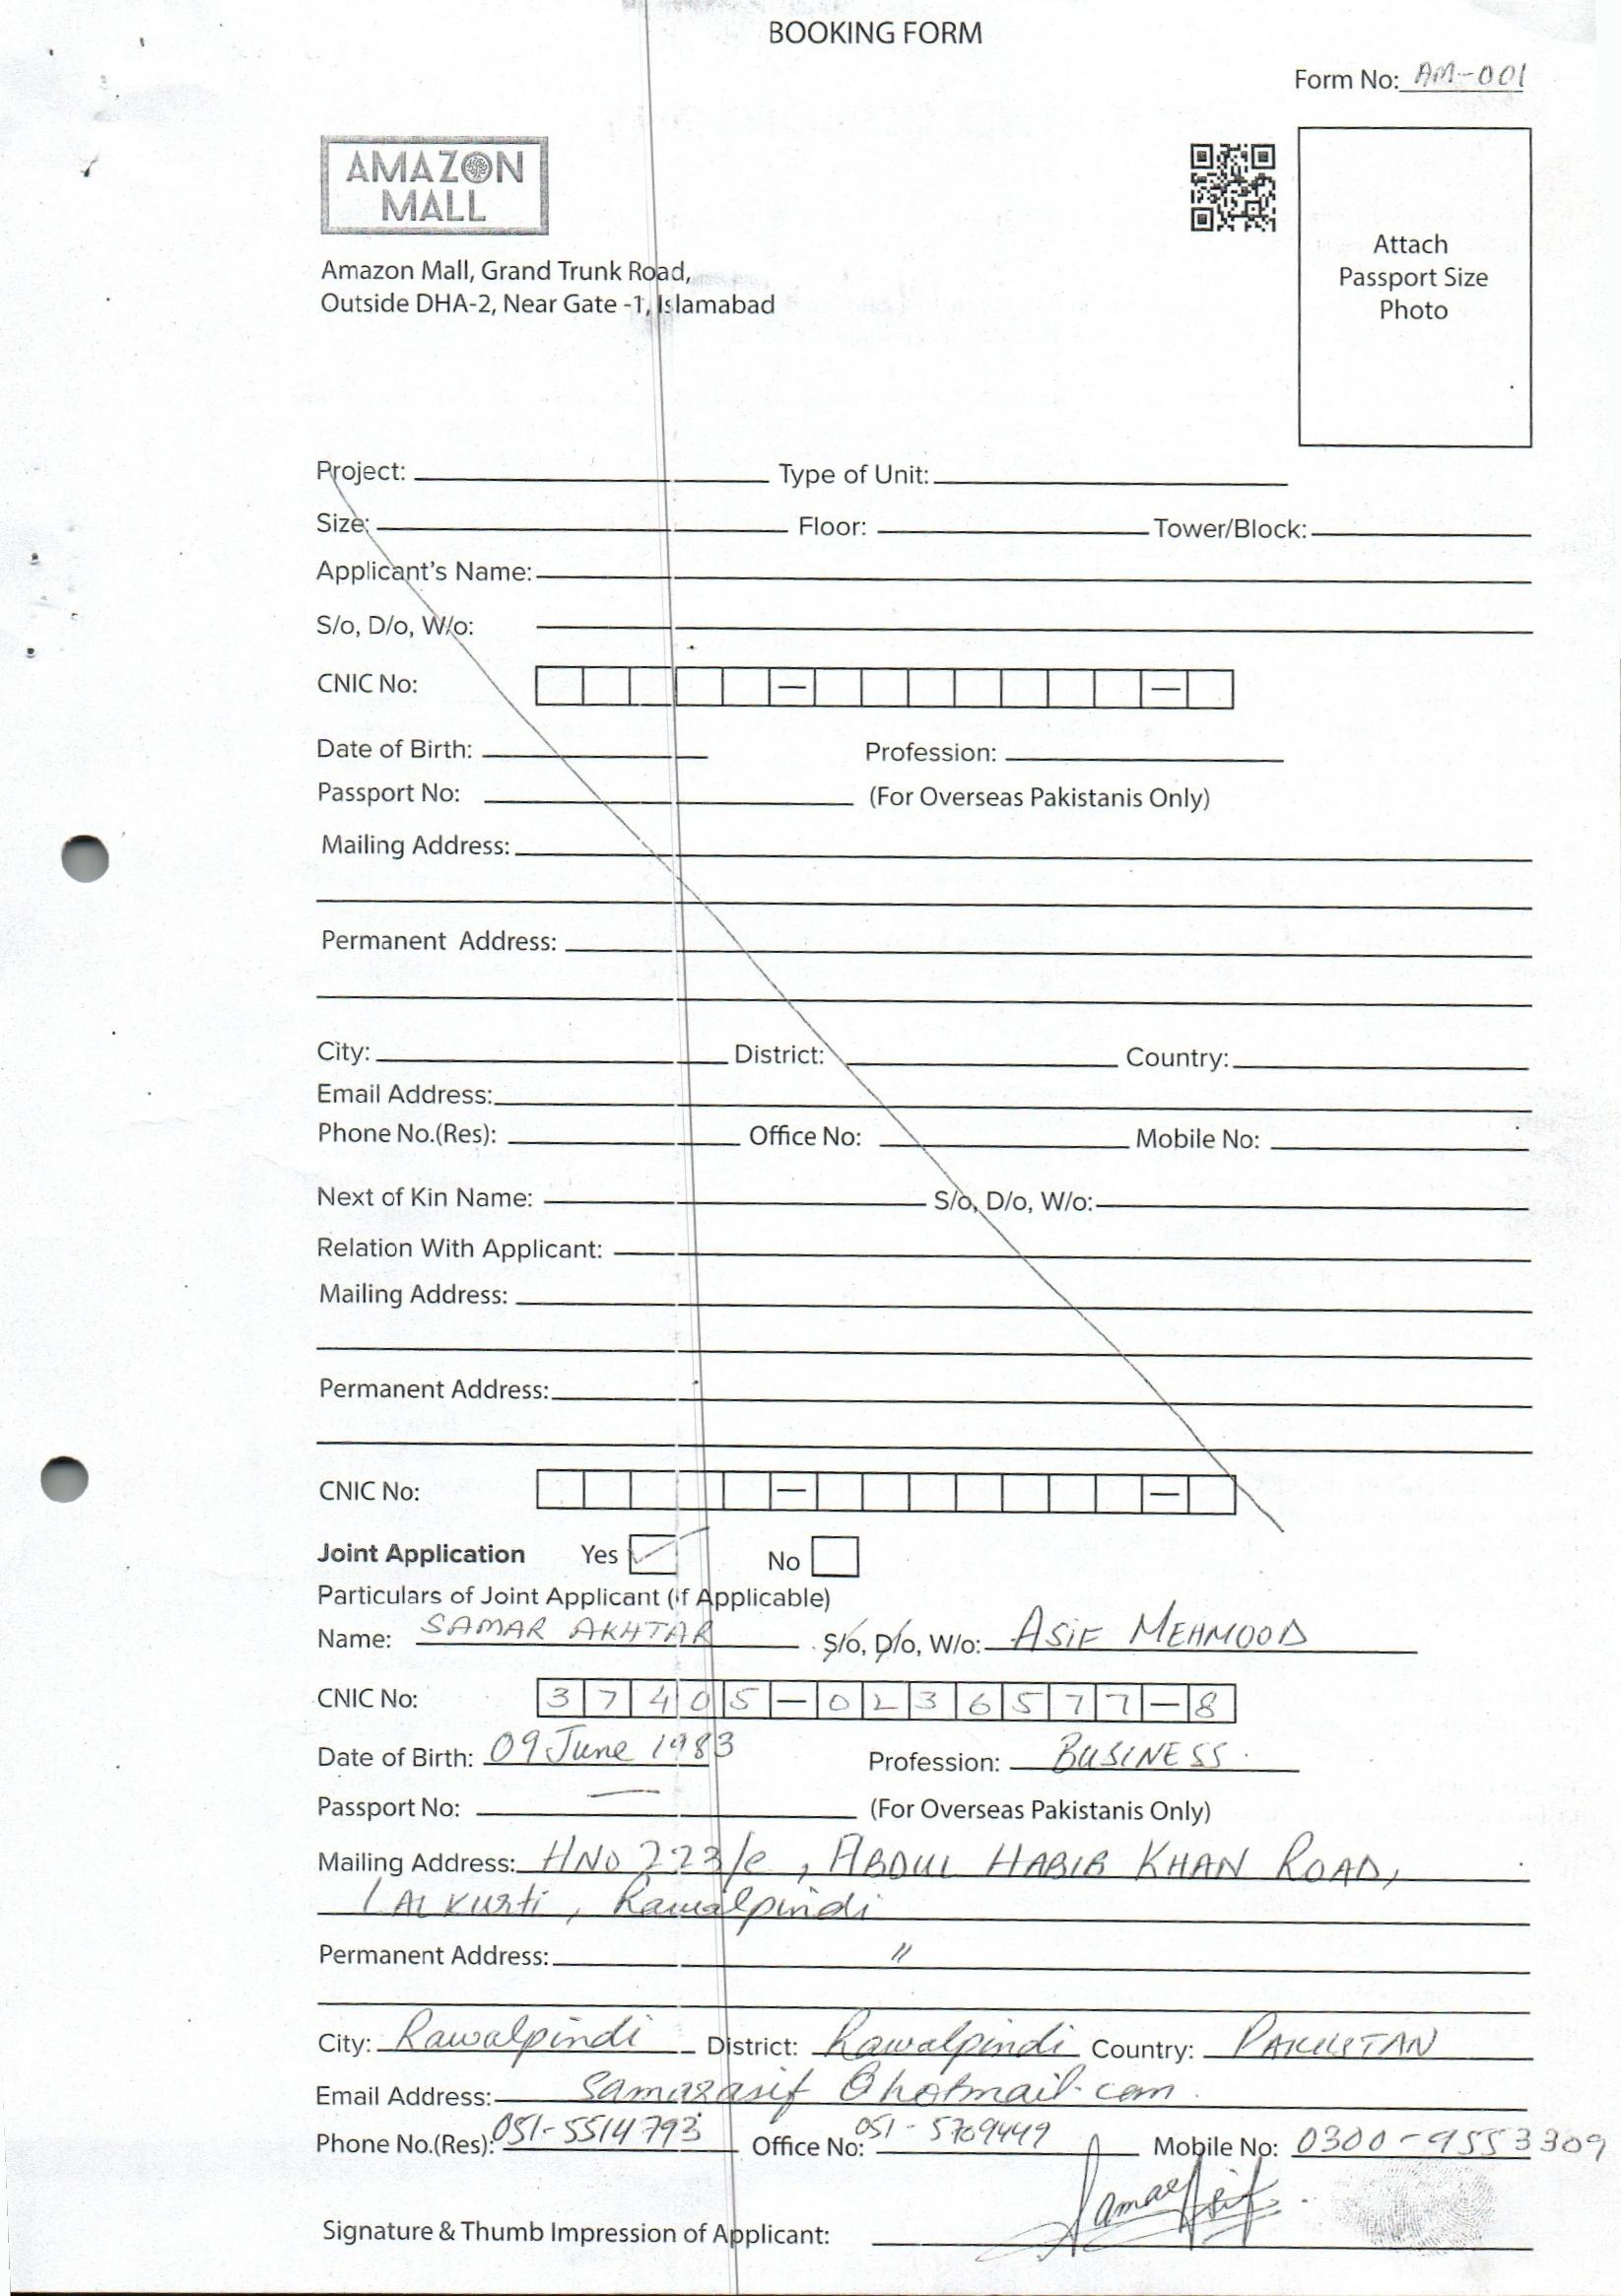 BOOKING FORM
Form No: AM-001
AMAZON
MALL
Amazon Mall, Grand Trunk Road,
Outside DHA-2, Near Gate -1, Islamabad
Attach
Passport Size
Photo
Project: Type of Unit:
Size: Floor: Tower/Block:
Applicant's Name:
S/o, D/o, W/o:
CNIC No: — —
Date of Birth: Profession:
Passport No: (For Overseas Pakistanis Only)
Mailing Address:
Permanent Address:
City: District: Country:
Email Address:
Phone No.(Res): Office No: Mobile No:
Next of Kin Name: S/o, D/o, W/o:
Relation With Applicant:
Mailing Address:
Permanent Address:
CNIC No: — —
Joint Application Yes ✓ No
Particulars of Joint Applicant (if Applicable)
Name: SAMAR AKHTAR S/o, D/o, W/o: ASIF MEHMOOD
CNIC No: 37405—0236577—8
Date of Birth: 09 June 1983 Profession: BUSINESS.
Passport No: — (For Overseas Pakistanis Only)
Mailing Address: HNO 223/e, ABDUL HABIB KHAN ROAD,
LALKurti, Rawalpindi
Permanent Address: "
City: Rawalpindi District: Rawalpindi Country: PAKISTAN
Email Address: samarasif@hotmail.com.
Phone No.(Res): 051-5514793 Office No: 051-5709449 Mobile No: 0300-9553309
Signature & Thumb Impression of Applicant: Samar Asif